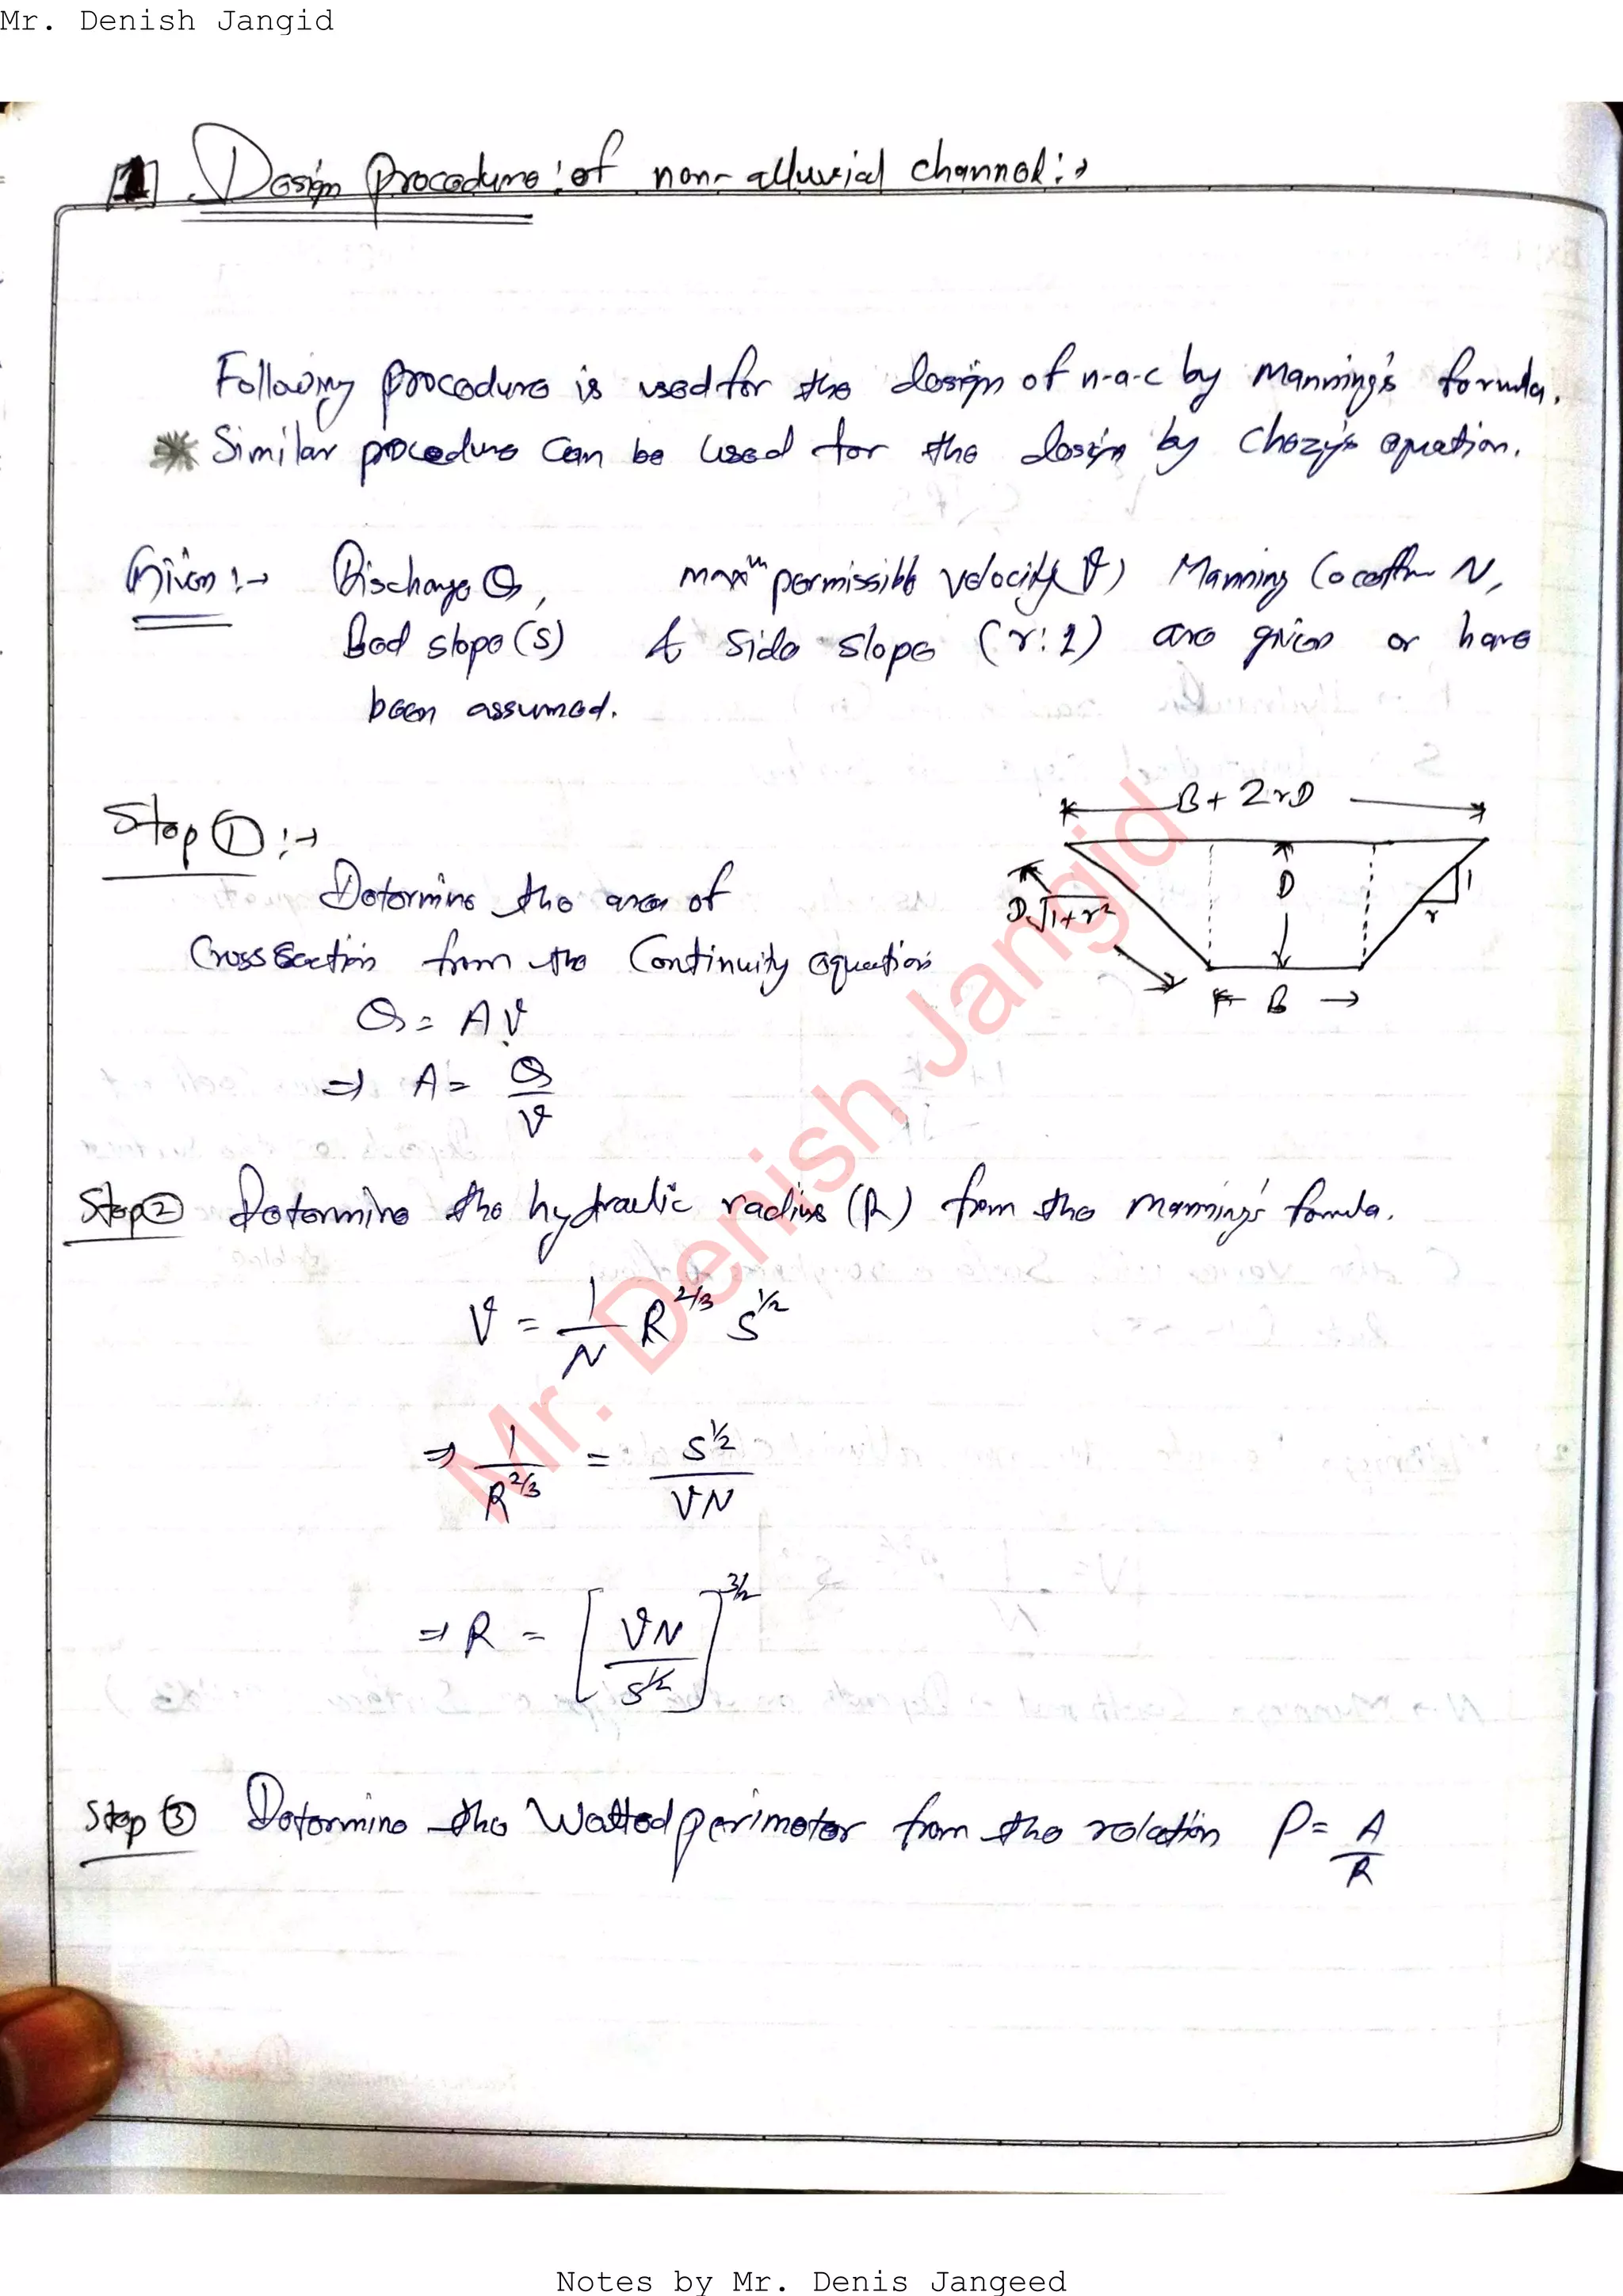 Mr. Denish Jangid
1 Design procedure of non-alluvial channel :→
Following procedure is used for the design of n-a-c by Manning's formula.
* Similar procedure can be used for the design by Chezy's equation.
Given :→ Discharge Q, maxm permissible velocity V, Manning N,
Bed slope (S) & side slope (r:1) are given or have
been assumed.
Step ① :→
B + 2rD
D
D√1+r²
1
r
B
Determine the area of
Cross section from the Continuity equation
Q = AV
⇒ A = Q/V
Step ② Determine the hydraulic radius (R) from the Manning's formula.
V = 1/N R^2/3 S^1/2
⇒ 1/R^2/3 = S^1/2 / VN
⇒ R = [VN / S^1/2]^3/2
Step ③ Determine the Wetted perimeter from the relation P = A/R
Mr. Denish Jangid
Notes by Mr. Denis Jangeed